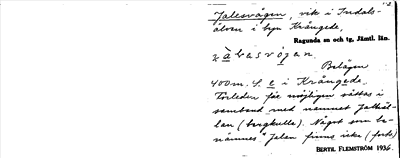 Jalesvågen, vik i Indals-
älven i byn Krångede,
Ragunda sn och tg, Jämtl. län.
Belägen
400 m. S. e i Krångede.
Förleden får möjligen sättas i
samband med namnet
(bergkulle). Något som be-
nämnes "Jalen finns icke (forts)
BERTIL FLEMSTRÖM 1936.